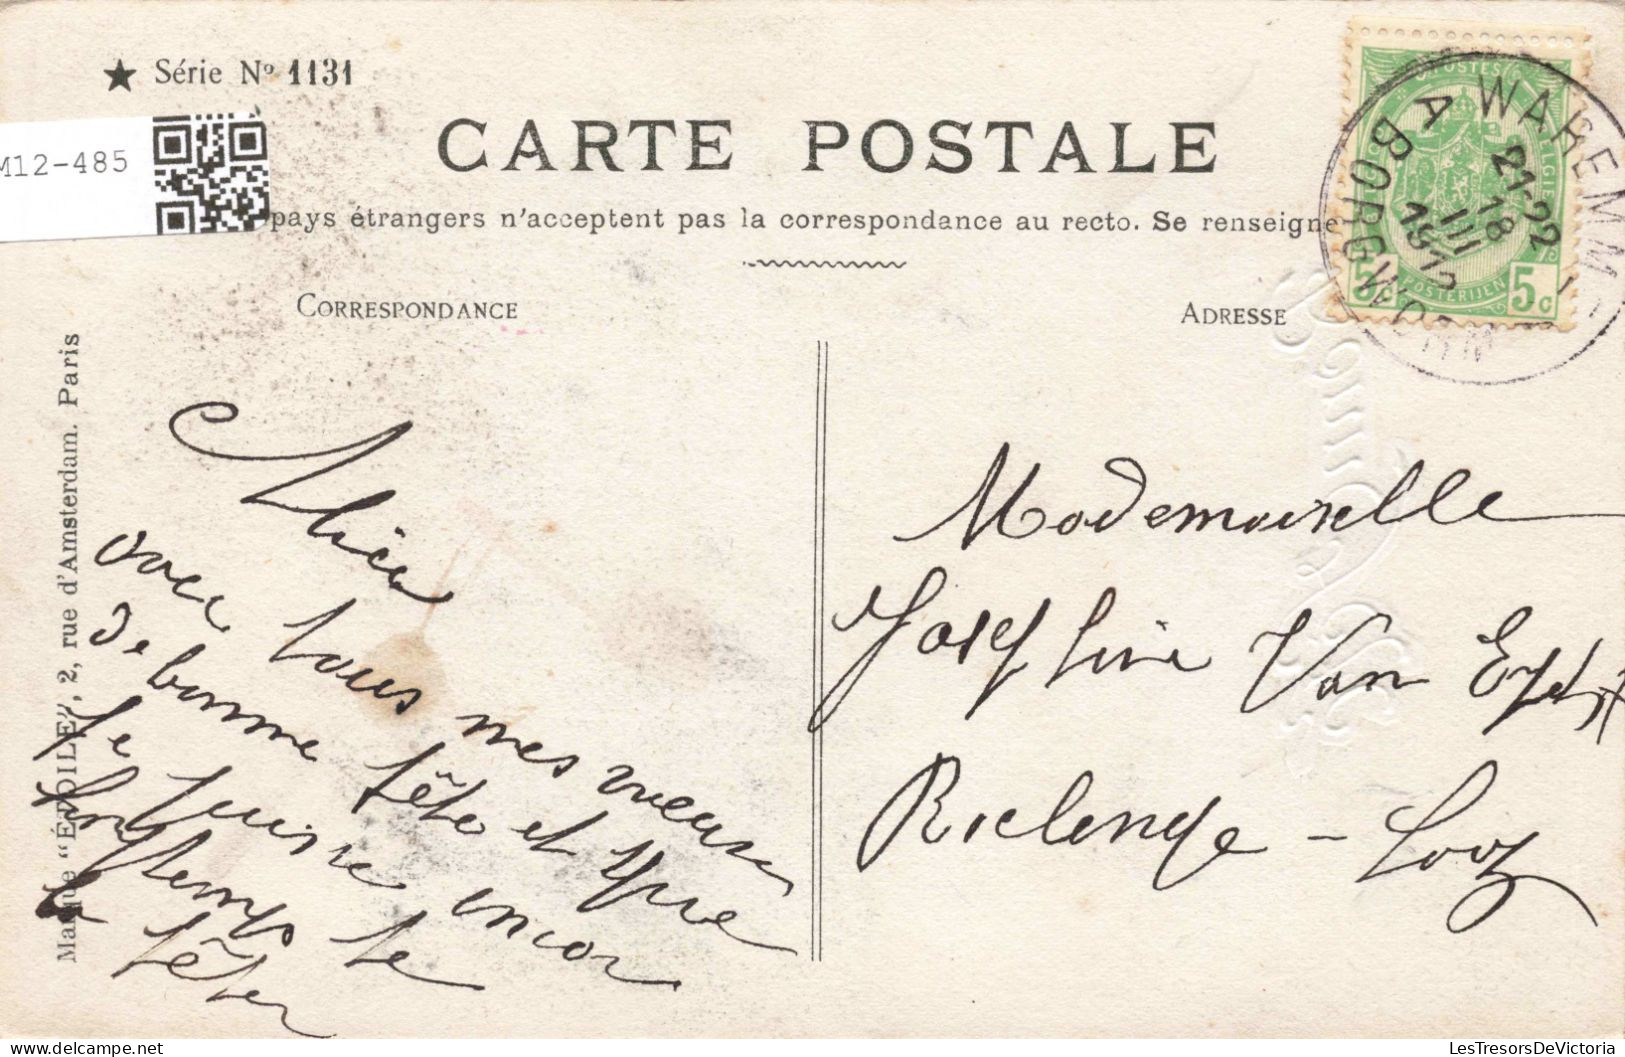 ★ Série Nº 1131
M12-485
CARTE POSTALE
pays étrangers n'acceptent pas la correspondance au recto. Se renseigne
CORRESPONDANCE
ADRESSE
POSTES BELGIE
POSTERIJEN
5c 5c
WAREMME
A BORGWORM
21-22
18 III
1912
Marque "ÉTOILE", 2, rue d'Amsterdam. Paris
avec tous mes vœux
de bonne fête et que
je puisse encor
longtemps te
la fêter
Mademoiselle
Josephine Van
Riclenge - Looz
LesTresorsDeVictoria
www.delcampe.net